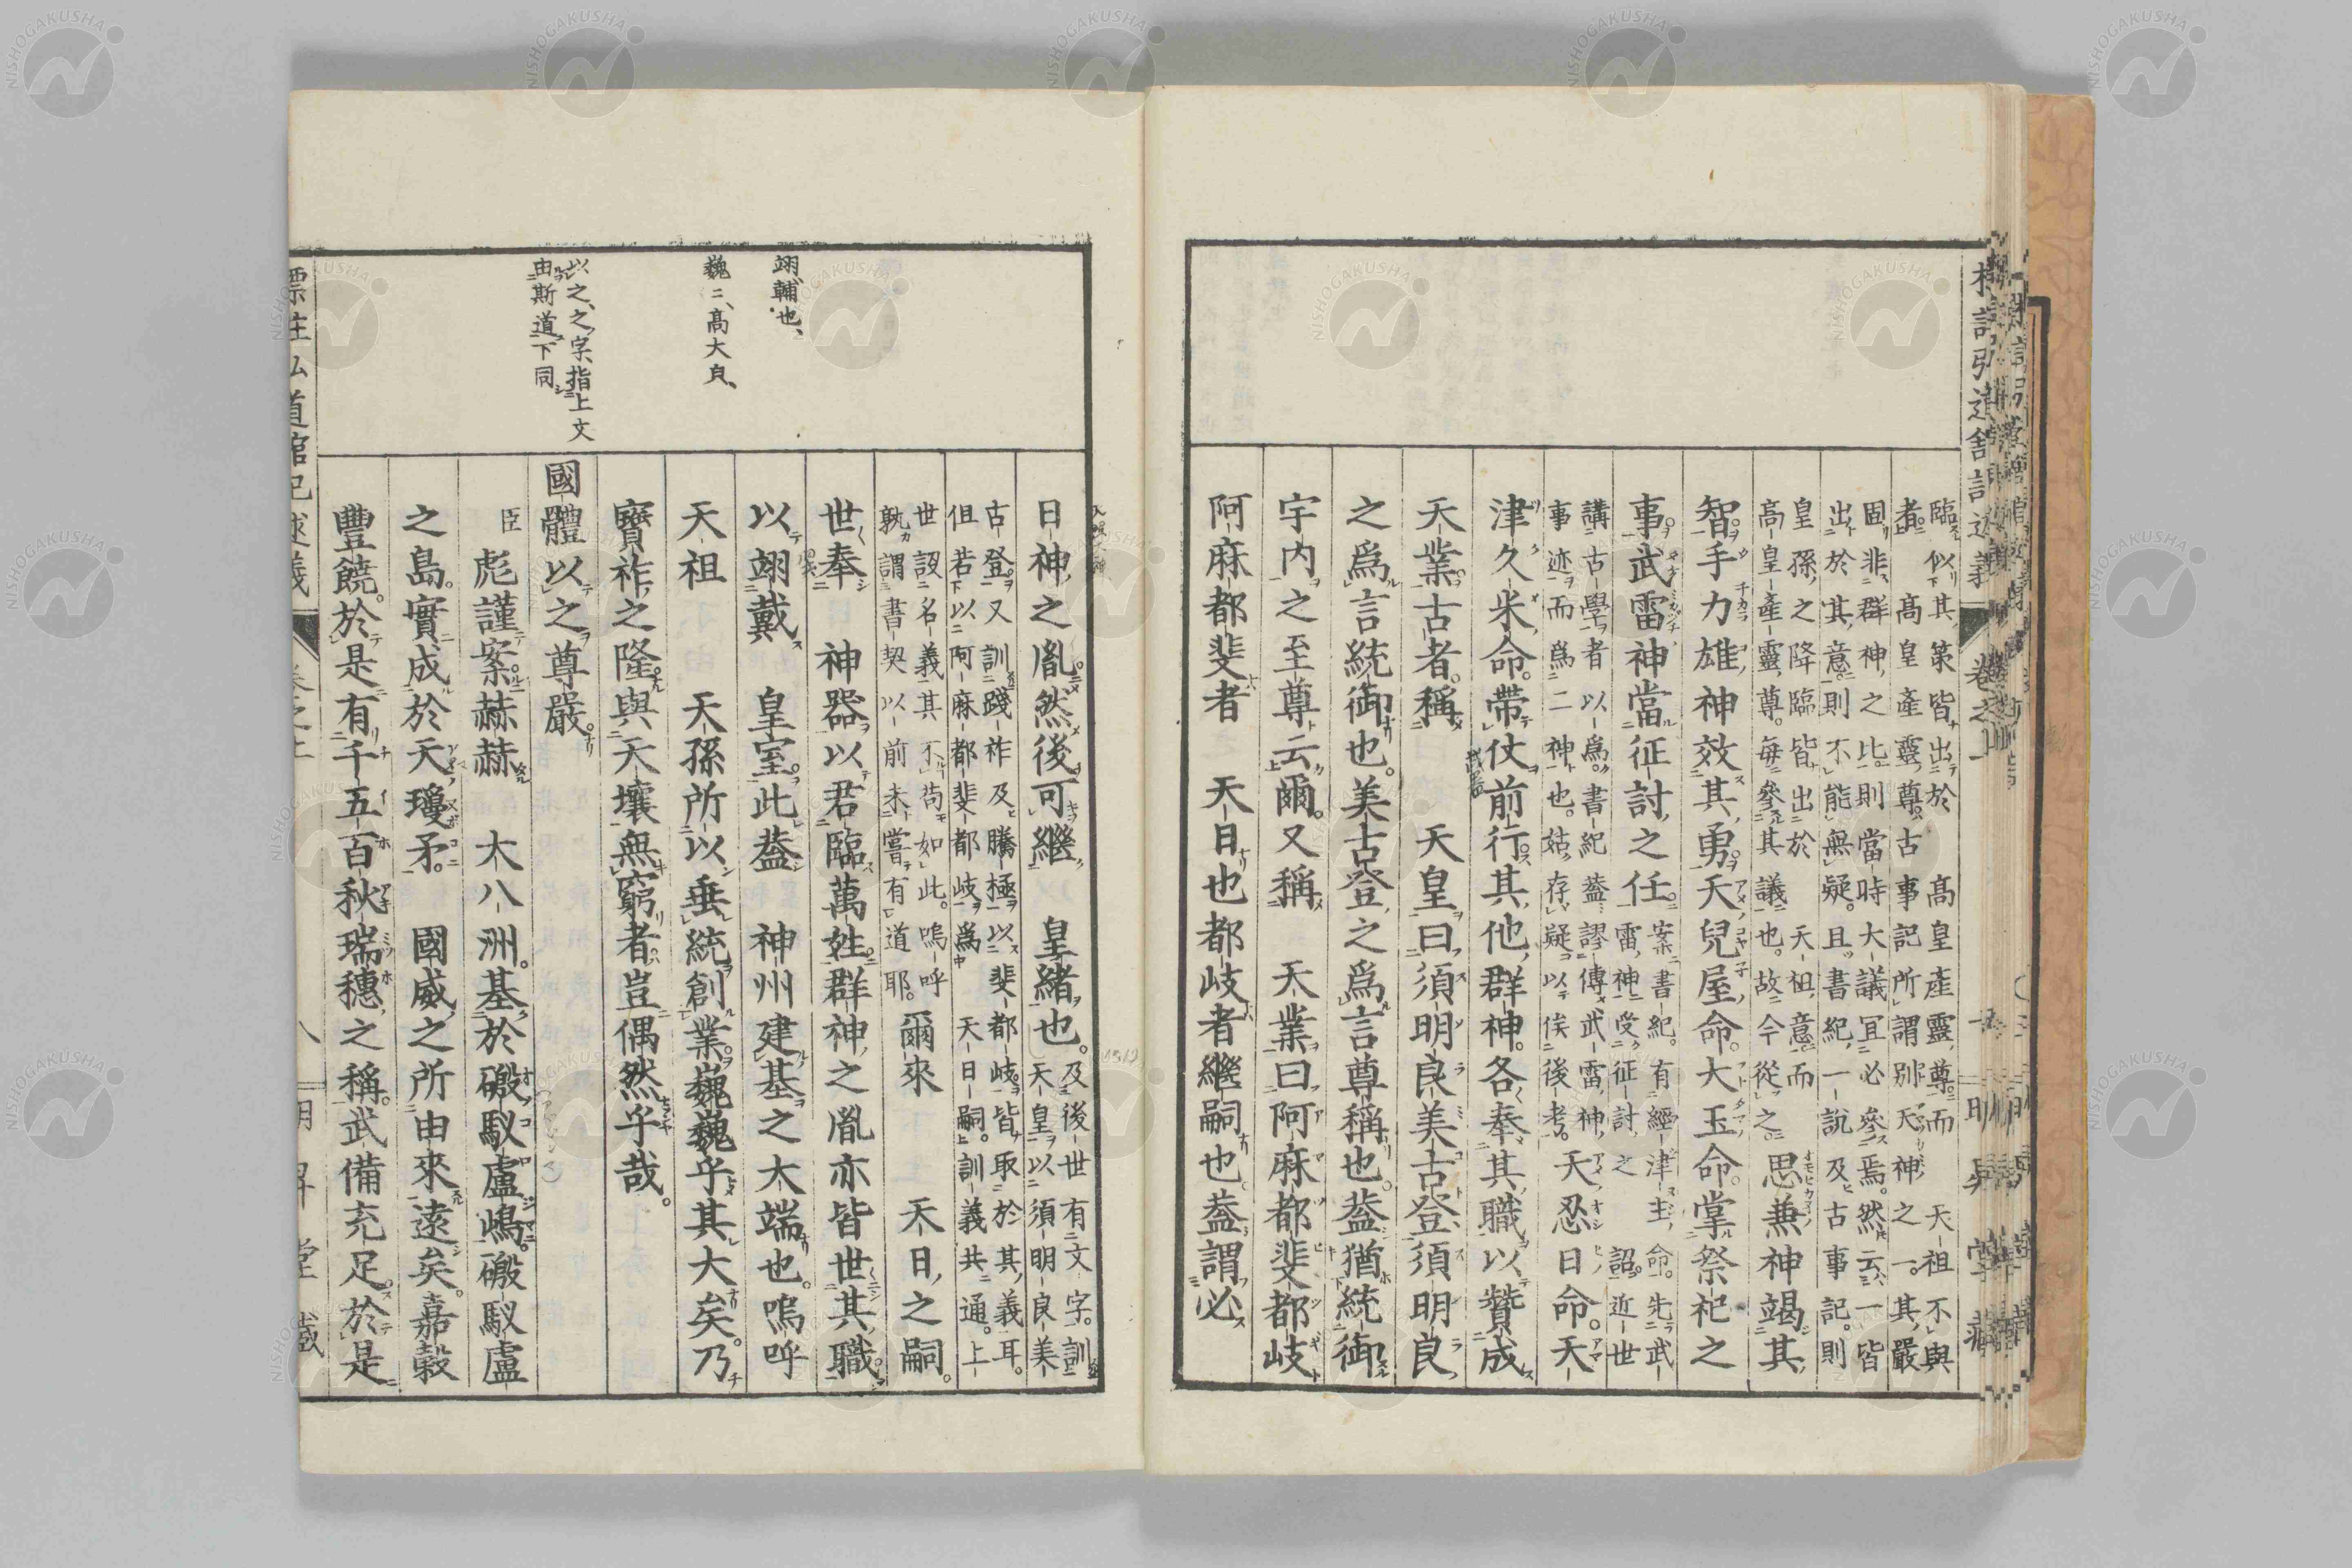 臨。似其策皆出於 高皇產靈尊。而 天祖不與
者。 高皇產靈尊。古事記所謂別天神之一。其嚴
固非群神之比。則當時大議宜必參焉。然云一皆
出於其意。則不能無疑。且書紀一說及古事記。則
皇孫之降臨皆出於 天祖意。而
高皇產靈尊。每參其議也。故今從之。思兼神竭其
智。手力雄神效其勇。天兒屋命。大玉命。掌祭祀之
事。武雷神當征討之任。案書紀。有經津主命。先武
雷神受征討之 詔。近世
講古學者以爲。書紀蓋謬傳武雷神
事迹而爲二神也。姑存疑以俟後考。天忍日命。天
津久米命。帶仗前行。其他群神。各奉其職以贊成
天業。古者。稱 天皇曰須明良美古登。須明良
之爲言統御也。美古登之爲言尊稱也。蓋猶統御
宇內之至尊云爾。又稱 天業曰阿麻都斐都岐
阿麻都斐者 天日也都岐者繼嗣也。蓋謂必
日神之胤然後可繼 皇緒也。及後世有文字。訓
天皇以須明良美
古登。又訓踐祚及騰極以斐都岐。皆取於其義耳。
但若以阿麻都斐都岐爲 天日嗣。訓義共通。上
世設名義其不苟如此。嗚呼
孰謂書契以前未嘗有道耶。爾來 天日之嗣。
世奉 神器以君臨萬姓。群神之胤亦皆世其職
以翊戴 皇室。此蓋 神州建基之大端也。嗚呼
天祖 天孫所以垂統創業。巍巍乎其大矣。乃
寶祚之隆與天壤無窮者。豈偶然乎哉。
國體以之尊嚴。
臣彪謹案赫赫 大八洲。基於磤馭盧嶋。磤馭盧
之島。實成於天瓊矛。 國威之所由來遠矣。嘉穀
豐饒。於是有千五百秋瑞穗之稱。武備充足。於是
翊、輔也、
巍〻、高大皃、
以之、之字、指上文
由斯道、下同
標註弘道館記述義 卷之上 八 明昇堂藏
卷之上